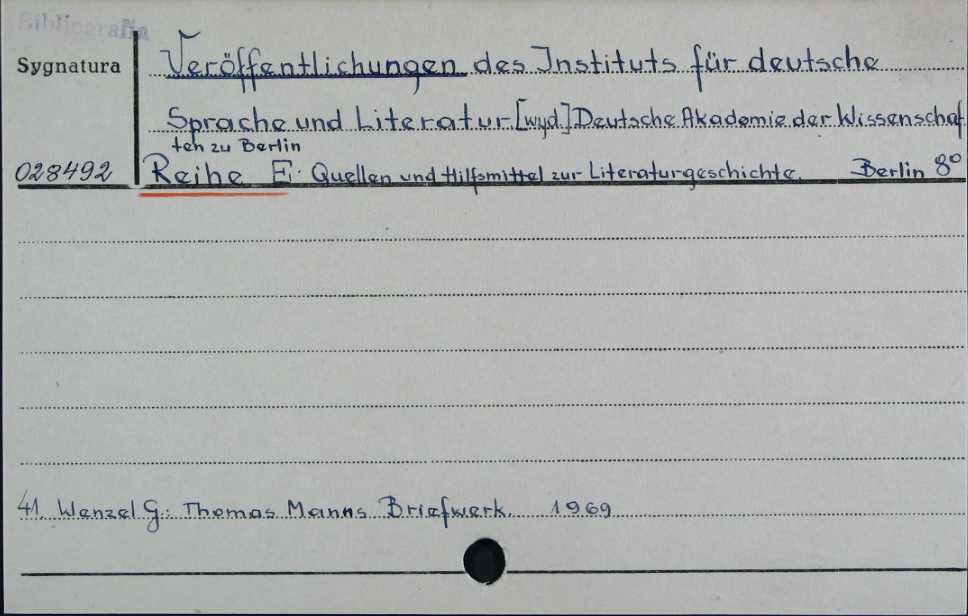 Bibliografia
Sygnatura
Veröffentlichungen des Instituts für deutsche
Sprache und Literatur [wyd.] Deutsche Akademie der Wissenschaf
ten zu Berlin
028492
Reihe E: Quellen und Hilfsmittel zur Literaturgeschichte. Berlin 8°
41. Wenzel G.: Thomas Manns Briefwerk. 1969